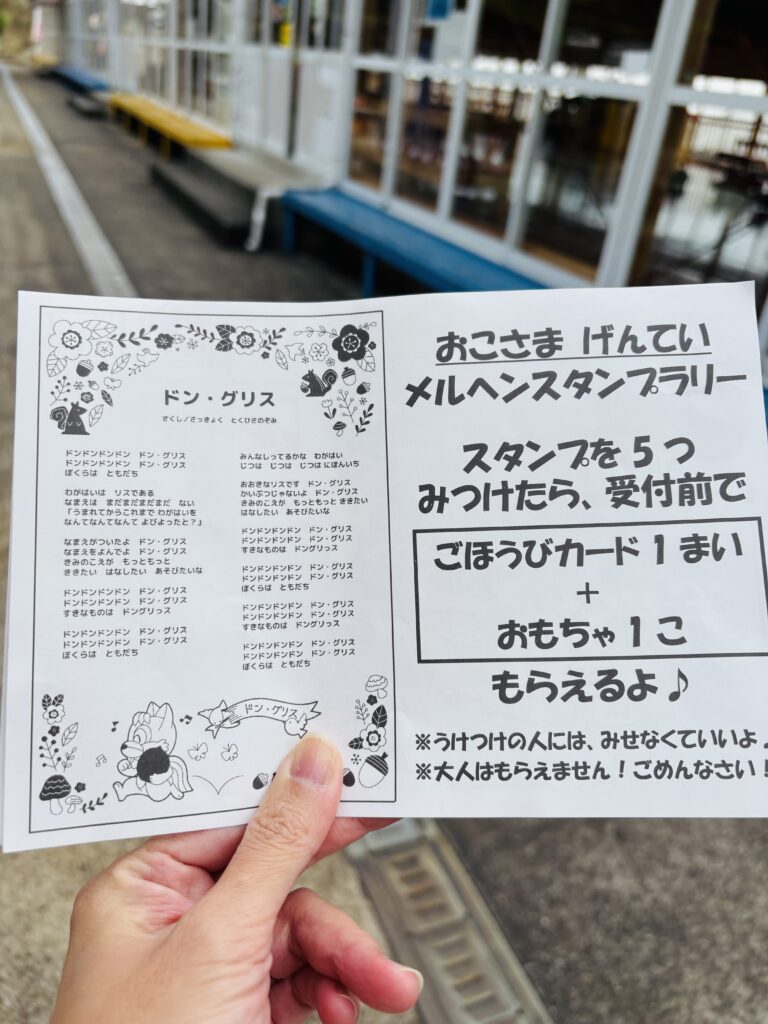 ドン・グリス
さくし/さっきょく とくひさのぞみ
ドンドンドンドン ドン・グリス
ドンドンドンドン ドン・グリス
ぼくらは ともだち
わがはいは リスである
なまえは まだまだまだまだ ない
「うまれてからこれまで わがはいを
なんてなんてなんて よびよったと?」
なまえがついたよ ドン・グリス
なまえをよんでよ ドン・グリス
きみのこえが もっともっと
ききたい はなしたい あそびたいな
ドンドンドンドン ドン・グリス
ドンドンドンドン ドン・グリス
すきなものは ドングリっス
ドンドンドンドン ドン・グリス
ドンドンドンドン ドン・グリス
ぼくらは ともだち
みんなしってるかな わがはい
じつは じつは じつは にほんいち
おおきなリスです ドン・グリス
かいぶつじゃないよ ドン・グリス
きみのこえが もっともっと ききたい
はなしたい あそびたいな
ドンドンドンドン ドン・グリス
ドンドンドンドン ドン・グリス
すきなものは ドングリっス
ドンドンドンドン ドン・グリス
ドンドンドンドン ドン・グリス
ぼくらは ともだち
ドンドンドンドン ドン・グリス
ドンドンドンドン ドン・グリス
すきなものは ドングリっス
ドンドンドンドン ドン・グリス
ドンドンドンドン ドン・グリス
ぼくらは ともだち
ドン・グリス
おこさま げんてい
メルヘンスタンプラリー
スタンプを5つ
みつけたら、受付前で
ごほうびカード1まい
+
おもちゃ1こ
もらえるよ♪
※うけつけの人には、みせなくていいよ♪
※大人はもらえません!ごめんなさい!